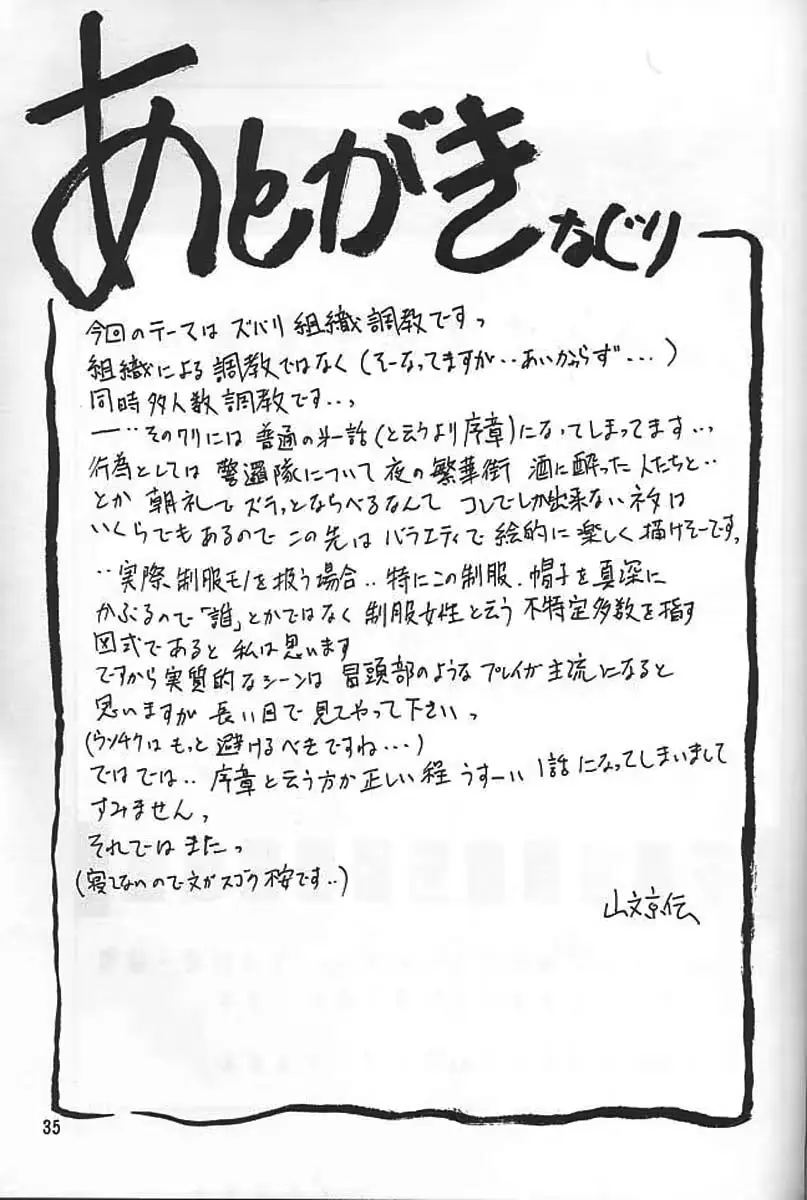 あとがきなぐり
今回のテーマは ズバリ 組織調教ですっ
組織による 調教ではなく (そーなってますが‥あいかわらず…)
同時多人数調教です‥っ
一‥そのワリには 普通の第一話(と云うより序章)になってしまってます‥っ
行為としては 警邏隊について 夜の繁華街 酒に酔った人たちと‥
とか 朝礼で ズラッとならべるなんて コレでしか出来ないネタは
いくらでもあるので この先は バラエティで 絵的に 楽しく 描けそーです、
‥実際 制服モノを扱う場合‥特にこの制服.帽子を真深に
かぶるので「誰」とかではなく 制服女性と云う 不特定多数を指す
図式であると 私は思います
ですから 実質的なシーンは 冒頭部のような プレイが 主流になると
思いますが 長い目で 見てやって下さいっ
(ウンチクは もっと 避けるべきですね…)
ではでは‥ 序章と云う方が正しい程 うすーいい 1話になってしまいまして
すみません、
それでは またっ
(寝てないので文がスゴク 不安です‥)
山文京伝
35